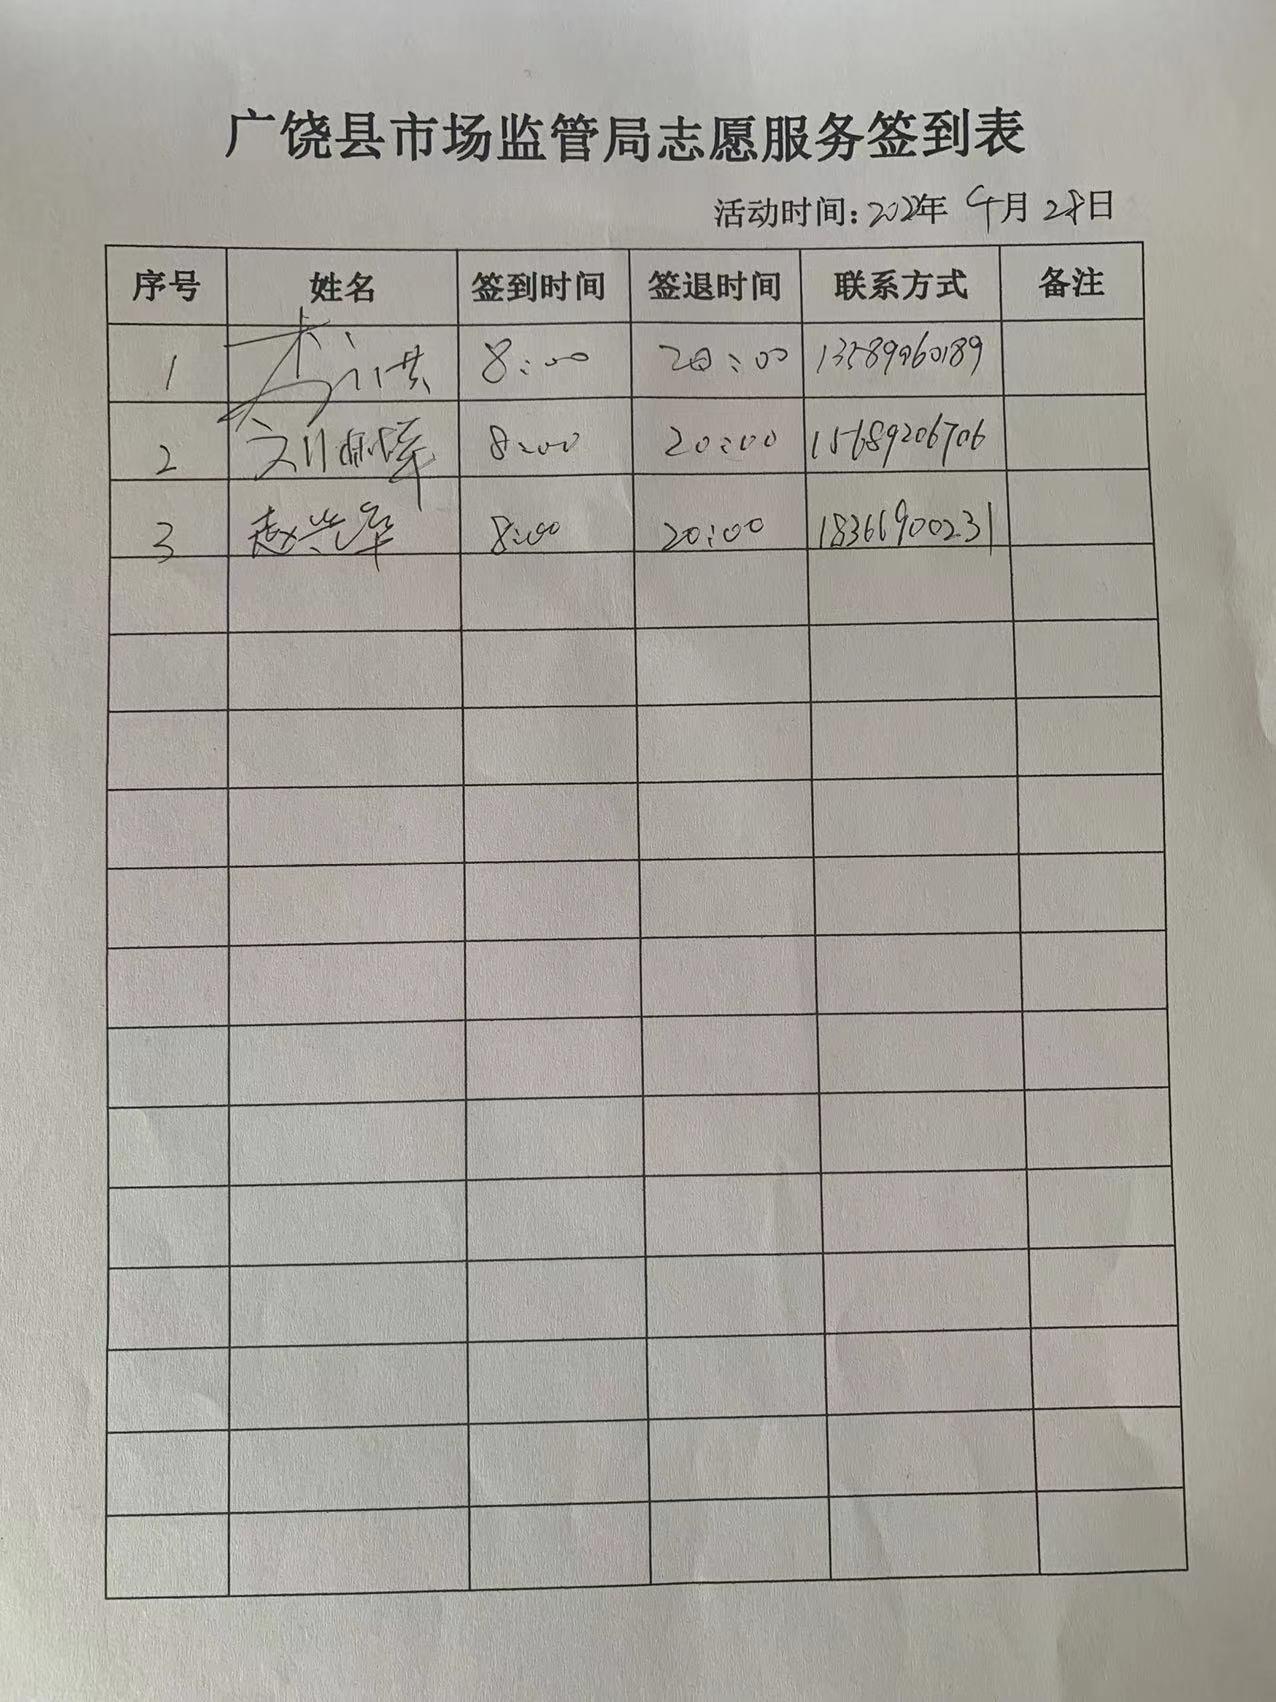 广饶县市场监管局志愿服务签到表
活动时间:2022年 4月 28日
序号 姓名 签到时间 签退时间 联系方式 备注
1 8:00 20:00 13589960189
2 8:00 20:00 15689206706
3 赵兴军 8:00 20:00 18366900231